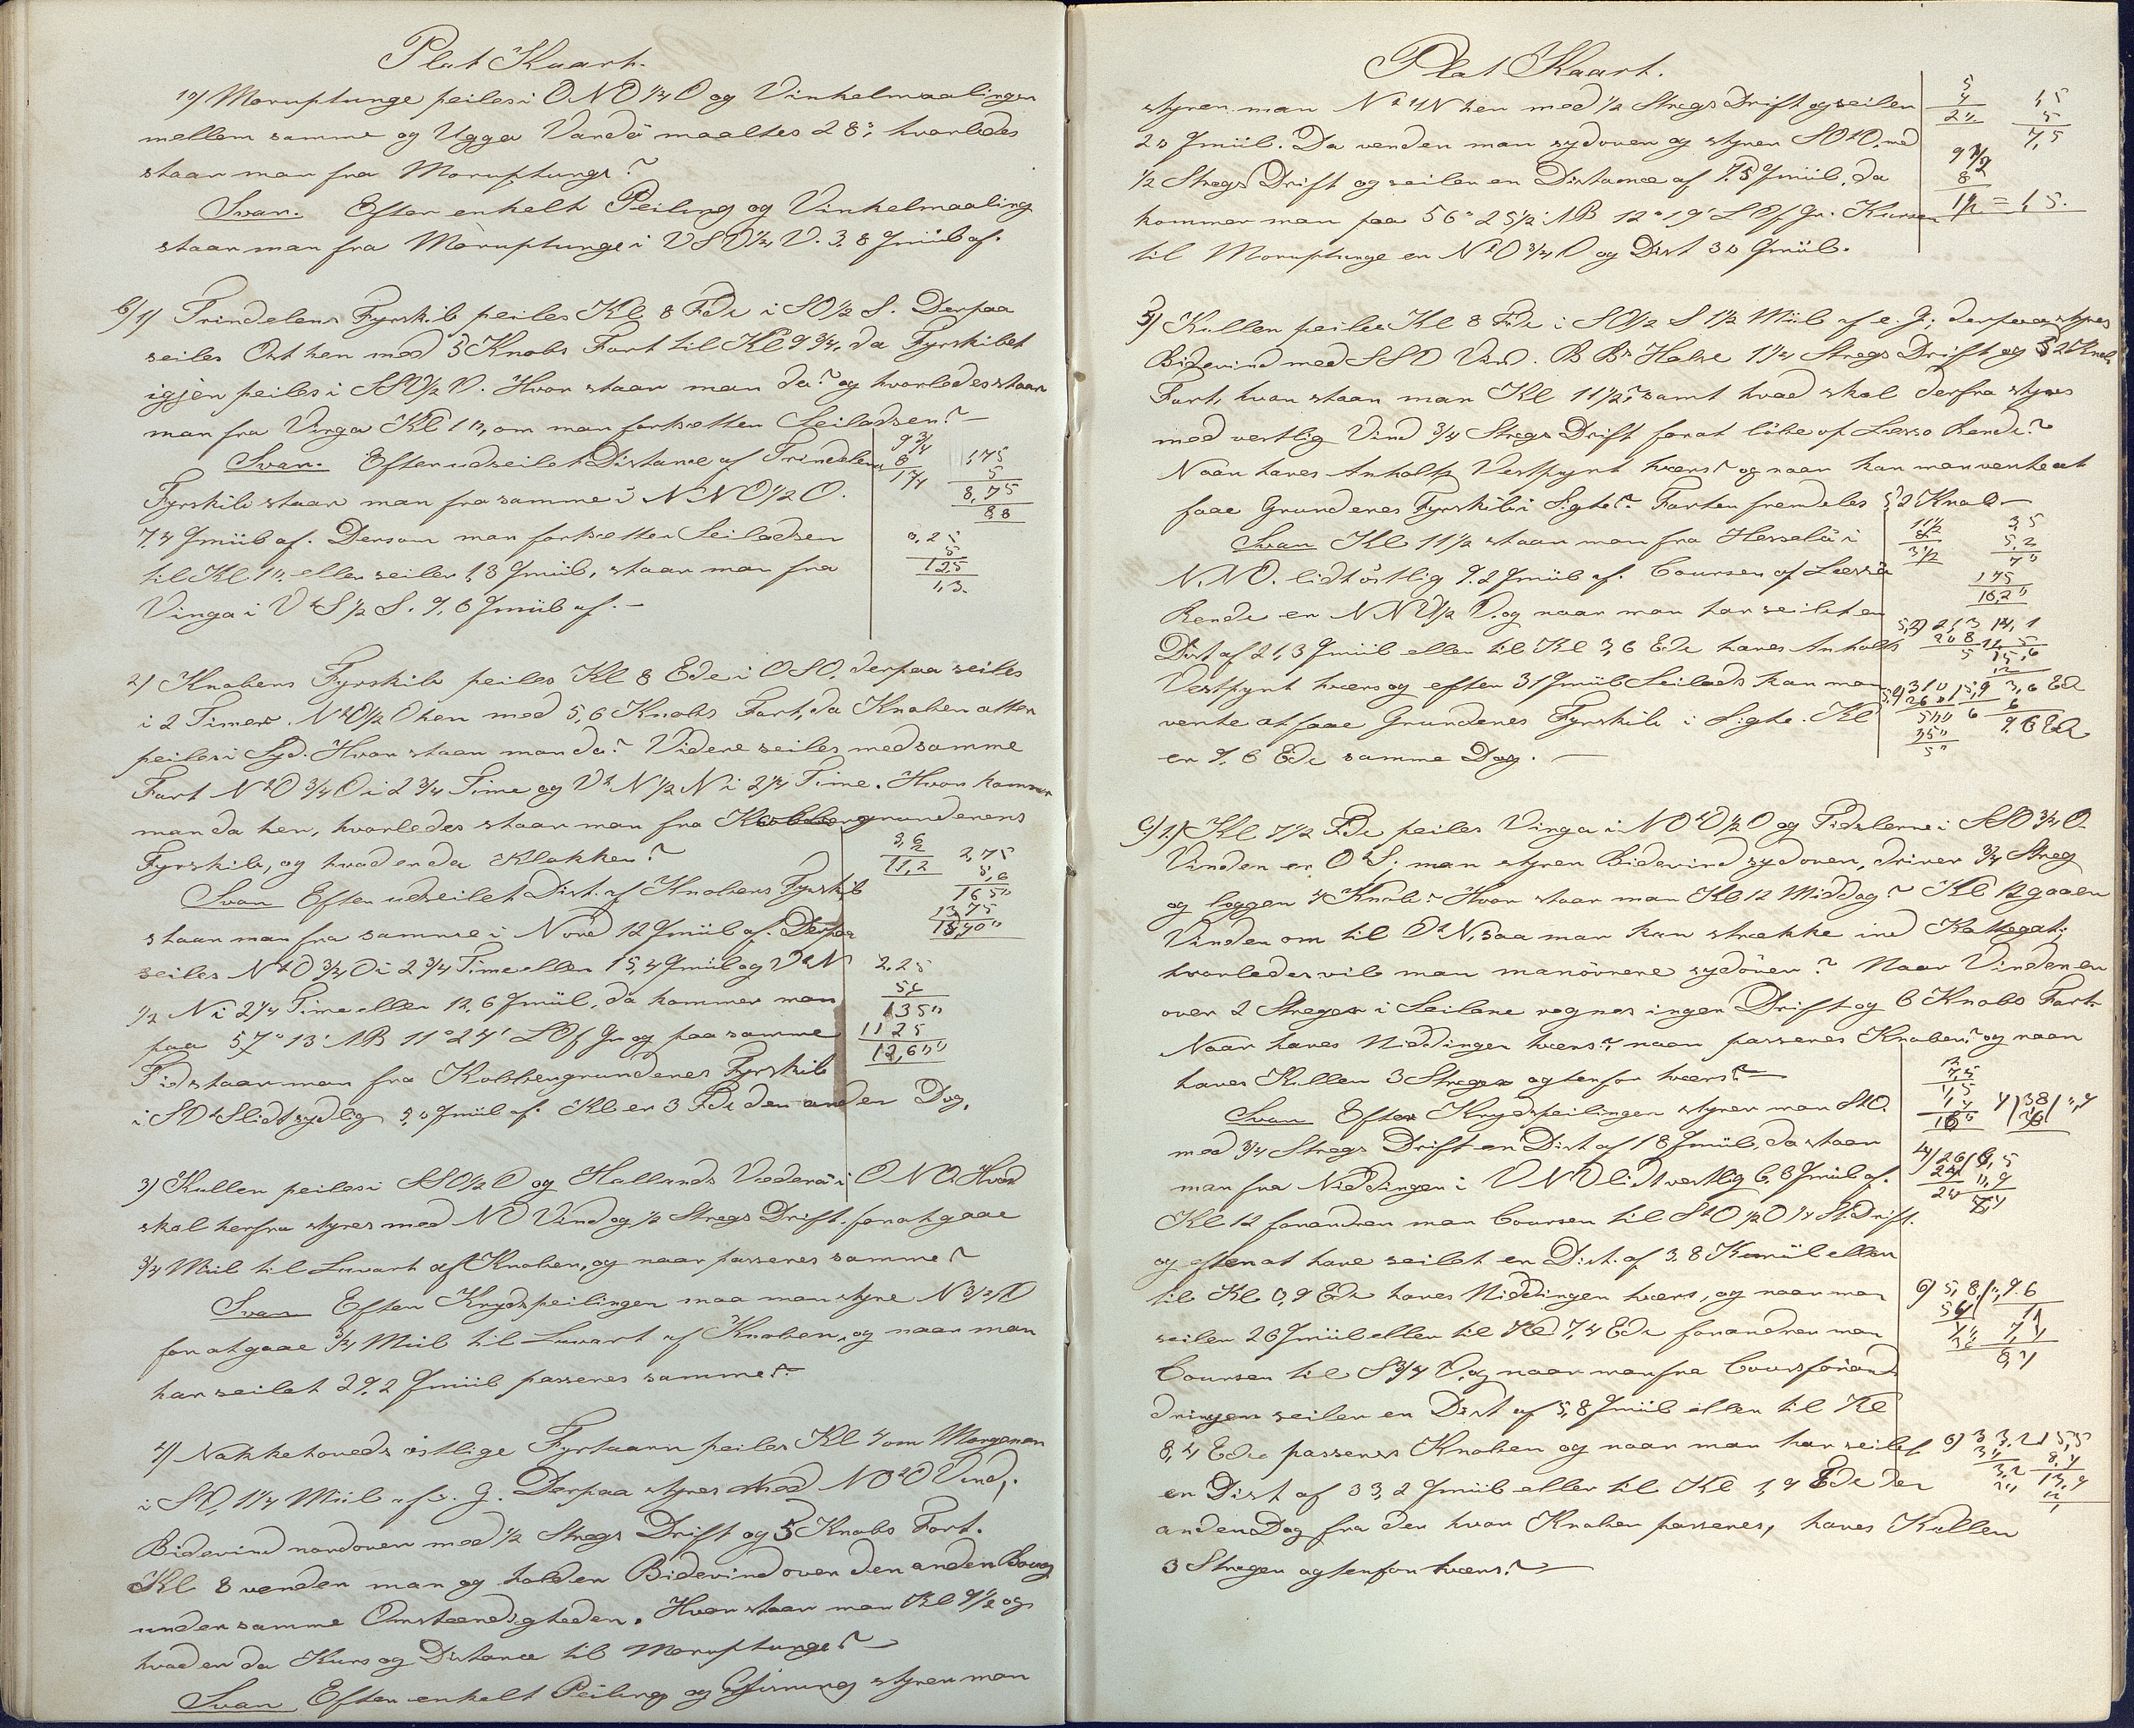 Plat Kaart.
10) Moruptunge peiles i ONO 1/4 O og Vinkelmaalingen
mellem samme og Ugger Vardö maaltes 28°; hvorledes
staar man fra Moruptunge?
Svar. Efter enkelt Peiling og Vinkelmaaling
staar man fra Moruptunge i VSV 1/4 V. 3,8 Qmiil af.
b) 1) Trindelens Fyrskib peiles Kl 8 Fdr i SO 1/2 S. Derpaa
seiles Ost hen med 5 Knobs Fart til Kl 9 3/4, da Fyrskibet
igjen peiles i SSV 1/2 V. Hvor staar man da? og hvorledes staar
man fra Vinga Kl 10, om man fortsætter Seiladsen? —
Svar. Efter udseilet Distance af Trindelens
Fyrskib staar man fra samme i NNO 1/2 O.
7,4 Qmiil af. Dersom man fortsætter Seiladsen
til Kl 10, eller seiler 1,3 Qmiil, staar man fra
Vinga i VtS 1/2 S. 9,6 Qmiil af. —
9 3/4
8
1 3/4
1,75
5
8,75
8,8
0,25
5
125
1,3.
2) Knobens Fyrskib peiles Kl 8 Edr i OSO, derpaa seiles
i 2 Timer NtO 1/2 O hen med 5,6 Knobs Fart, da Knoben atter
peiles i Syd. Hvor staar man da? Videre seiles med samme
Fart NtO 3/4 O i 2 3/4 Time og VtN 1/2 N i 2 1/4 Time. Hvor kommer
man da hen, hvorledes staar man fra Kobbergrundenens
Fyrskib, og hvad er da Klokken?
Svar Efter udseilet Dist. af Knobens Fyrskib
staar man fra samme i Nord 12 Qmiil af. Derpaa
seiles NtO 3/4 O i 2 3/4 Time eller 15,4 Qmiil og VtN
1/2 N i 2 1/4 Time eller 12,6 Qmiil, da kommer man
paa 57° 13' NB 11° 24' LOf Gr og paa samme
Tid staar man fra Kobbergrundenes Fyrskib
i SOtS lidt sydlig Qmiil af. Kl er 3 Fdr den anden Dag.
11,2
2,75
5,6
1650
1375
15,400
2,25
5,6
1350
1125
12,600
3) Kullen peiles i SSO 1/2 O og Hallands Väderö i ONO. Hvad
skal herfra styres med NV Vind og 1/2 Stregs Drift. for at gaae
3/4 Miil til Luvart af Knoben, og naar passeres samme?
Svar Efter Krydspeilingen maa man styre N 3/4 V
for at gaae 3/4 Miil til Luvart af Knoben, og naar man
har seilet 29,2 Qmiil passeres samme? —
4) Nakkehoveds östlige Fyrtaarn peiles Kl 4 om Morgenen
i SV, 1 1/4 Miil af s. G. Derpaa styres med NOtO Vind,
Bidevind nordover med 1/2 Stregs Drift og 5 Knobs Fart.
Kl 8 vender man og holder Bidevind over den anden Boug
under samme Omstændigheder. Hvor staar man Kl 9 1/2 og
hvad er da Kurs og Distance til Moruptunge? —
Svar Efter enkelt Peiling og Gisning styrer man
Plat Kaart.
styrer man NtV hen med 1/2 Stregs Drift og seiler
20 Qmiil. Da vender man sydover og styrer SOtO, med
1/2 Stregs Drift og seiler en Distance af 7,5 Qmiil, da
kommer man paa 56° 25 1/2' NB 12° 19' LOf Gr. Kursen
til Moruptunge er NtO 3/4 O og Dist 30 Qmiil.
5
4
20
1,5
5
7,5
9 1/2
8
1 1/2 = 1,5.
5) Kullen peiles Kl 8 Fdr i SO 1/2 S 1 1/2 Miil af e. G; derpaa styres
Bidevind med SSV Vind. B Bs Halse 1 1/4 Stregs Drift og 5,2 Knobs
Fart, hvor staar man Kl 11 1/2? samt hvad skal derfra styres
med vestlig Vind 3/4 Stregs Drift for at löbe af Læssö Rende?
Naar haves Anholts Vestpynt tværs? og naar kan man vente at
faae Grundenes Fyrskib i Sigte? Farten fremdeles 5,2 Knob —
Svar Kl 11 1/2 staar man fra Hesselö i
NNO. lidt östlig 9,2 Qmiil af. Coursen af Læssö
Rende er NNV 1/2 V. og naar man har seilet en
Dist af 21,3 Qmiil eller til Kl 3,6 Edr haves Anholts
Vestpynt tværs og efter 31 Qmiil Seilads kan man
vente at faae Grundenes Fyrskib i Sigte. Kl
er 9,6 Edr samme Dag. —
11 1/2
8
3 1/2
3,5
5,2
70
175
18,20
c) 1) Kl 7 1/2 Fdr peiles Vinga i NOtO 1/2 O og Tidslerne i SSO 3/4 O.
Vinden er OtS; man styrer Bidevind sydover, driver 3/4 Streg
og logger 4 Knob. Hvor staar man Kl 12 Middag? Kl 12 gaaer
Vinden om til OtN, saa man kan strække ind Kattegat;
hvorledes vil man manövrere sydover? Naar Vinden er
over 2 Streger i Seilene regnes ingen Drift og 6 Knobs Fart
Naar haves Niddingen tværs?, naar passeres Knoben? og naar
haves Kullen 3 Streger agtenfor tværs? —
Svar Efter Krydspeilingen styrer man StO.
med 3/4 Stregs Drift en Dist af 18 Qmiil, da staar
man fra Niddingen i VNV lidt vestlig 6,8 Qmiil af.
Kl 12 forandrer man Coursen til StO 1/2 O 1/4 St. Drift.
og efter at have seilet en Dist. af 3,8 Kvmiil eller
til Kl 0,9 Edr haves Niddingen tværs, og naar man
seiler 26 Qmiil eller til Kl 7,4 Edr forandrer man
Coursen til S 3/4 V, og naar man fra Coursforand-
dringen seiler en Dist af 5,8 Qmiil eller til Kl
8,4 Edr passeres Knoben og naar man har seilet
en Dist af 33,2 Qmiil eller til Kl 1,9 Edr den
anden Dag fra den hvor Knoben passeres, haves Kullen
3 Streger agtenfor tværs? —